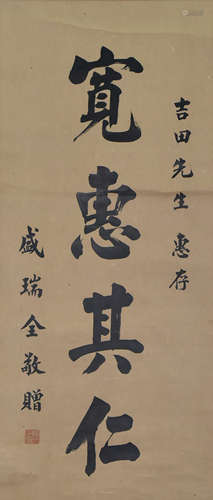 吉田先生 惠存
寬惠其仁
盛瑞全敬贈